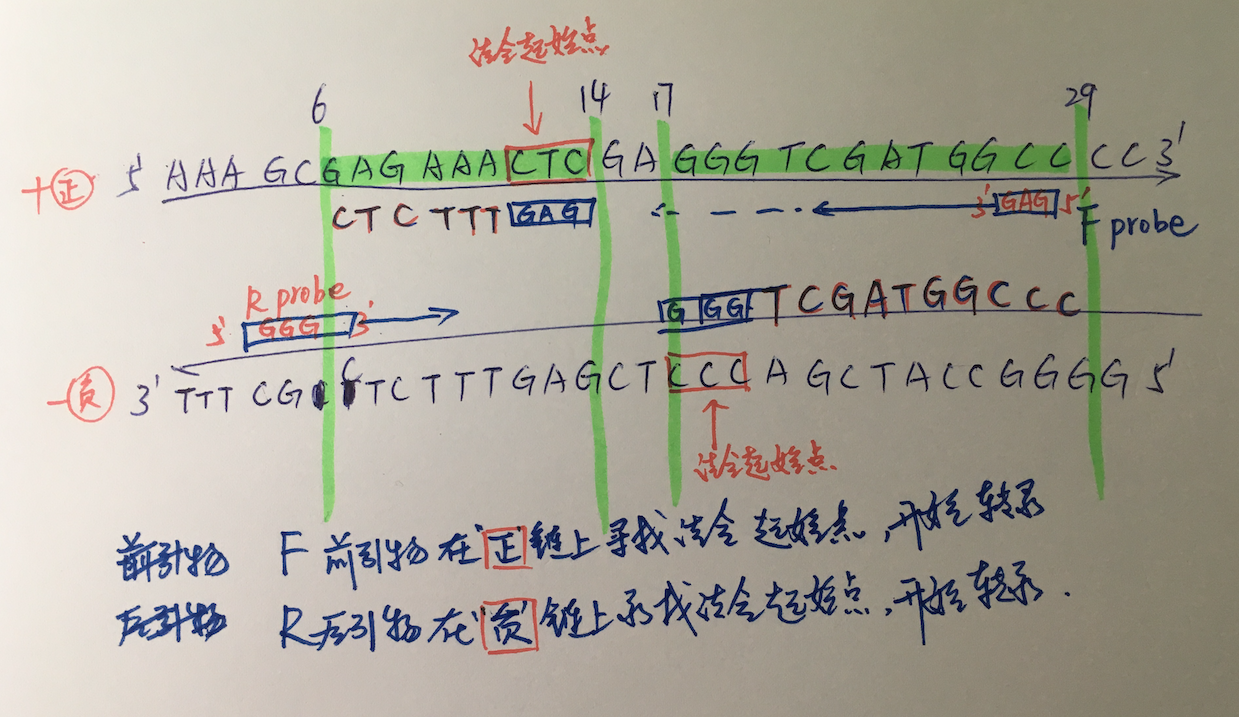 结合起始点
6 14 17 29
+ 正 5' AAA GCGAGAAACTCGAGGGTCGATGGCCCC 3'
CTCTTTGAG 3' GAG 5' F probe
R probe
5' GGG 3' GGGTCGATGGCCC
- 负 3' TTTCGCTTCTTTGAGCTCCCAGCTACCGGGG 5'
结合起始点
前引物 F 前引物在"正"链上寻找结合起始点,开始转录
后引物 R后引物在"负"链上寻找结合起始点,开始转录.